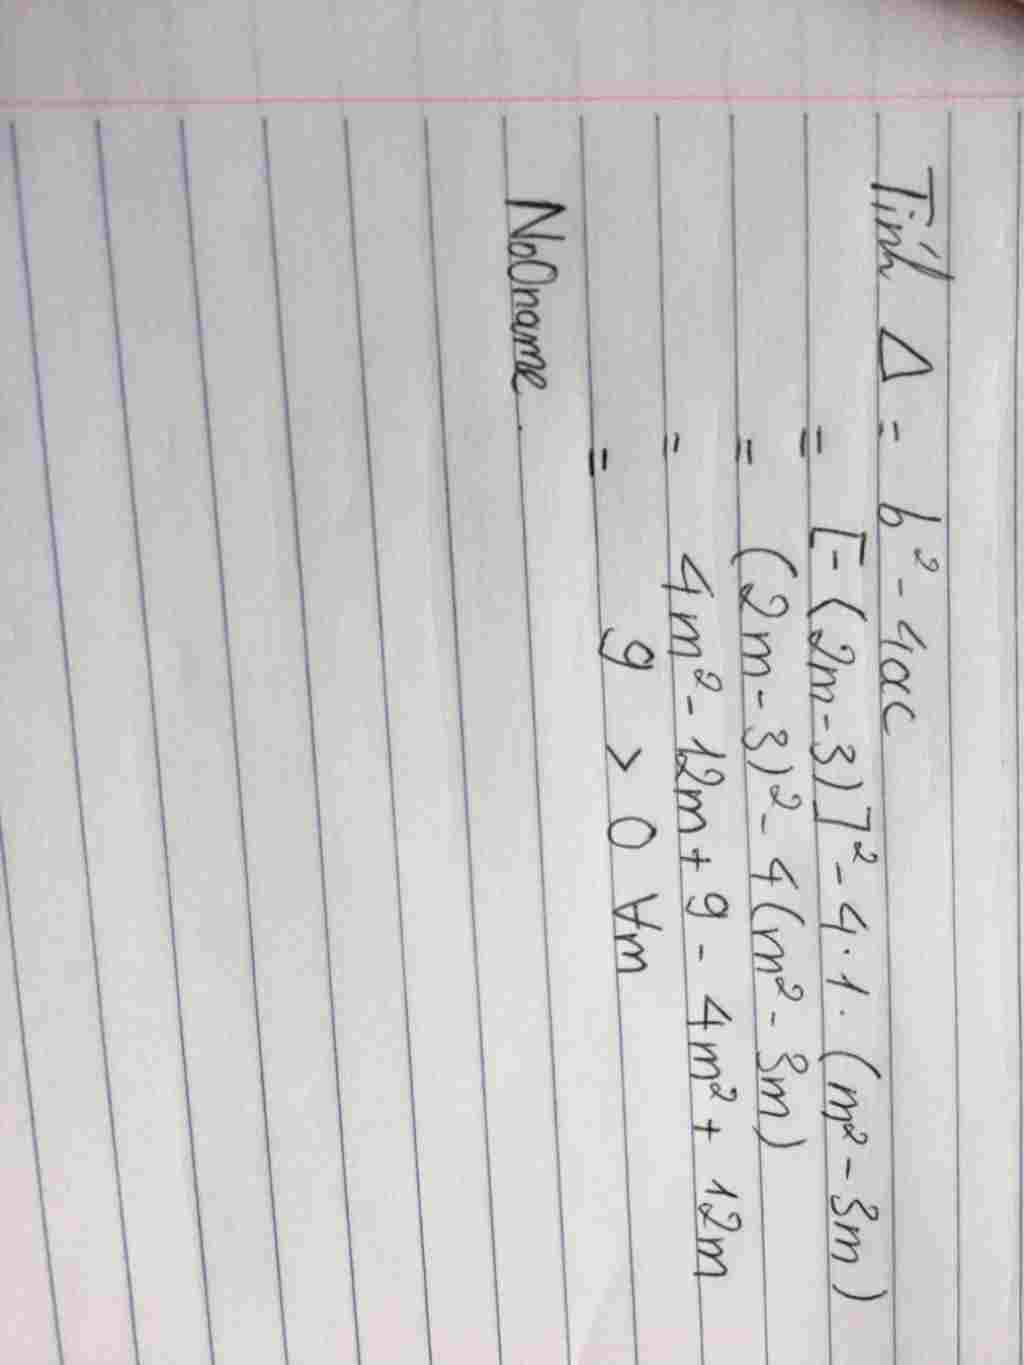 Tính Δ = b² - 4ac
= [-(2m-3)]² - 4.1.(m² - 3m)
= (2m-3)² - 4(m² - 3m)
= 4m² - 12m + 9 - 4m² + 12m
= 9 > 0 ∀m
NoOname.